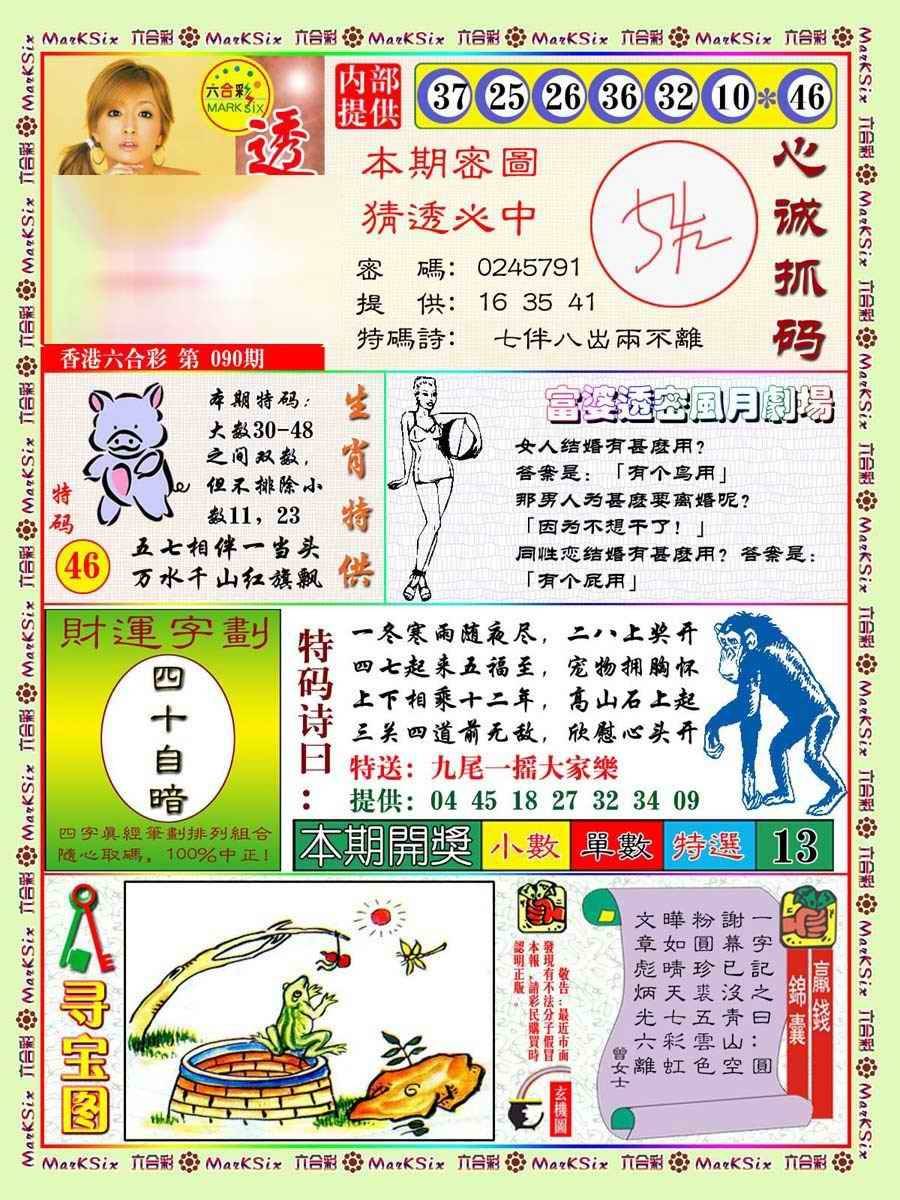 MarKSix 六合彩 MarKSix 六合彩 MarKSix 六合彩 MarKSix 六合彩 MarKSix 六合彩
六合彩
MARK SIX
透
内部
提供
37 25 26 36 32 10 * 46
本期密圖
猜透必中
密 碼: 0245791
提 供: 16 35 41
特碼詩: 七伴八出兩不離
心诚抓码
香港六合彩 第 090期
特码
46
本期特码:
大数30-48
之间双数,
但不排除小
数11, 23
五七相伴一当头
万水千山红旗飘
生肖特供
富婆透密風月劇場
女人结婚有甚麽用?
答案是: 「有个鸟用」
那男人为甚麽要离婚呢?
「因为不想干了! 」
同性恋结婚有甚麽用? 答案是:
「有个屁用」
財運字劃
四十自暗
四字真經筆劃排列組合
隨心取碼, 100%中正!
特码诗曰:
一冬寒雨随夜尽, 二八上奖开
四七起来五福至, 宠物拥胸怀
上下相乘十二年, 高山石上起
三关四道前无敌, 欣慰心头开
特送: 九尾一摇大家樂
提供: 04 45 18 27 32 34 09
本期開獎 小數 單數 特選 13
寻宝图
敬告:最近市面
發現有不法分子假冒
本報,請彩民購買時
認明正版。
玄機圖
一字記之曰:圓
謝幕已沒青山空
粉圓珍裘五雲色
曄如晴天七彩虹
文章彪炳光六離
曾女士
贏錢
錦囊
MarKSix 六合彩 MarKSix 六合彩 MarKSix 六合彩 MarKSix 六合彩 MarKSix 六合彩